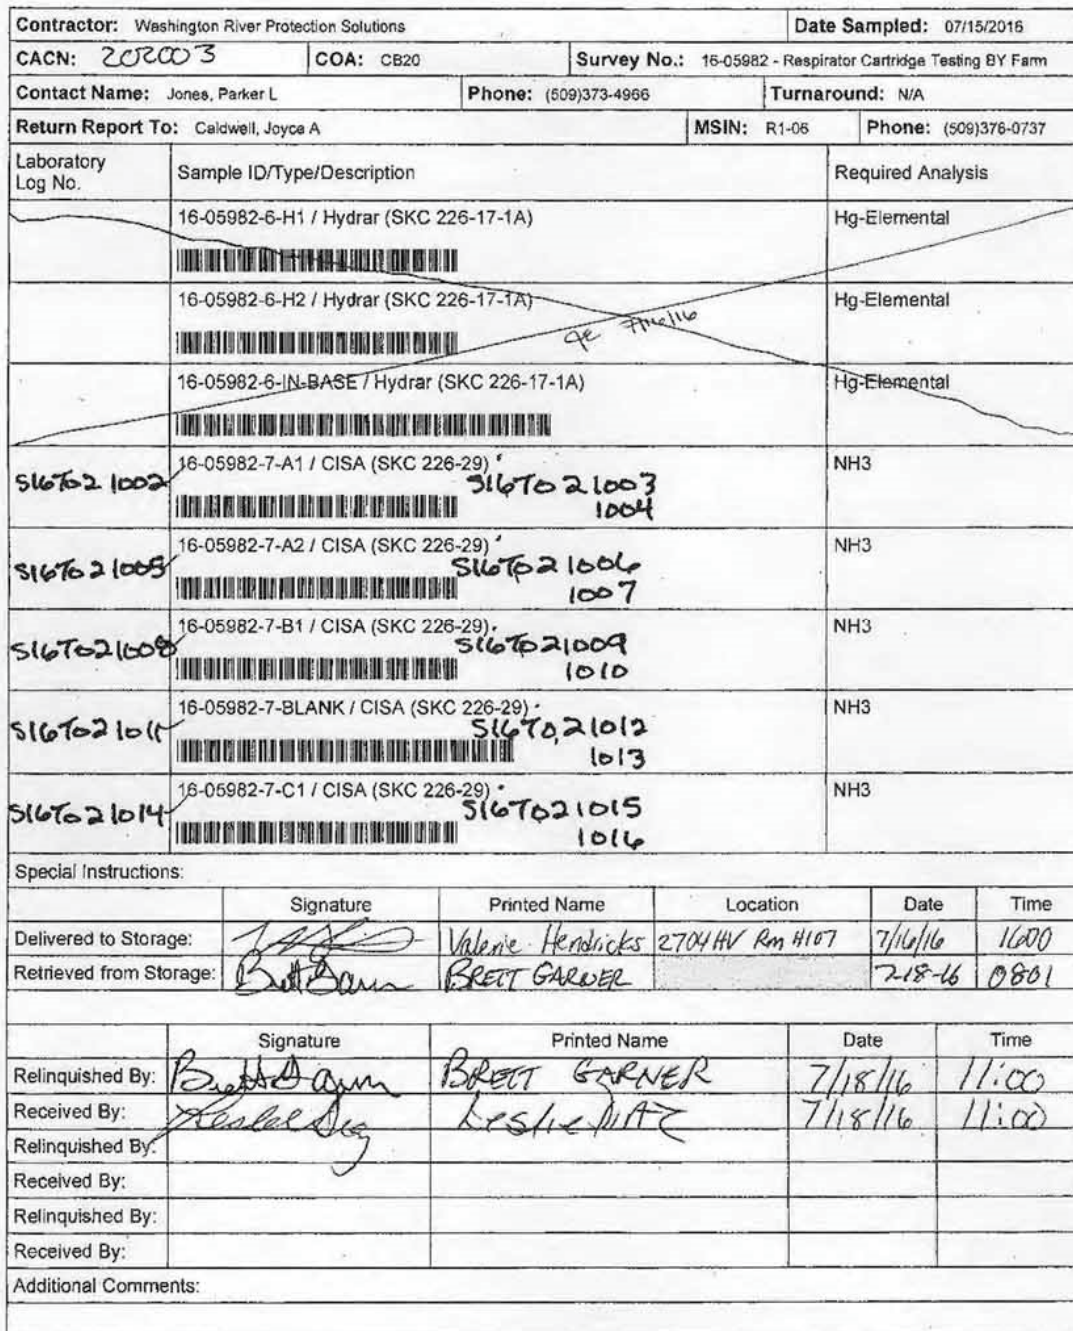 Contractor: Washington River Protection Solutions Date Sampled: 07/15/2016
CACN: 202003 COA: CB20 Survey No.: 16-05982 - Respirator Cartridge Testing BY Farm
Contact Name: Jones, Parker L Phone: (509)373-4966 Turnaround: N/A
Return Report To: Caldwell, Joyce A MSIN: R1-06 Phone: (509)376-0737
Laboratory
Log No. Sample ID/Type/Description Required Analysis
16-05982-6-H1 / Hydrar (SKC 226-17-1A) Hg-Elemental
16-05982-6-H2 / Hydrar (SKC 226-17-1A) Hg-Elemental
7/16/16
16-05982-6-IN-BASE / Hydrar (SKC 226-17-1A) Hg-Elemental
16-05982-7-A1 / CISA (SKC 226-29) NH3
S16T021002 S16T021003
1004
16-05982-7-A2 / CISA (SKC 226-29) NH3
S16T021005 S16T021006
1007
16-05982-7-B1 / CISA (SKC 226-29) NH3
S16T021008 S16T021009
1010
16-05982-7-BLANK / CISA (SKC 226-29) NH3
S16T021011 S16T021012
1013
16-05982-7-C1 / CISA (SKC 226-29) NH3
S16T021014 S16T021015
1016
Special Instructions:
Signature Printed Name Location Date Time
Delivered to Storage: Valerie Hendricks 2704HV Rm H107 7/16/16 1600
Retrieved from Storage: Brett Garner BRETT GARNER 7-18-16 0801
Signature Printed Name Date Time
Relinquished By: Brett Garner BRETT GARNER 7/18/16 11:00
Received By: Leslie Diaz Leslie DIAZ 7/18/16 11:00
Relinquished By:
Received By:
Relinquished By:
Received By:
Additional Comments: